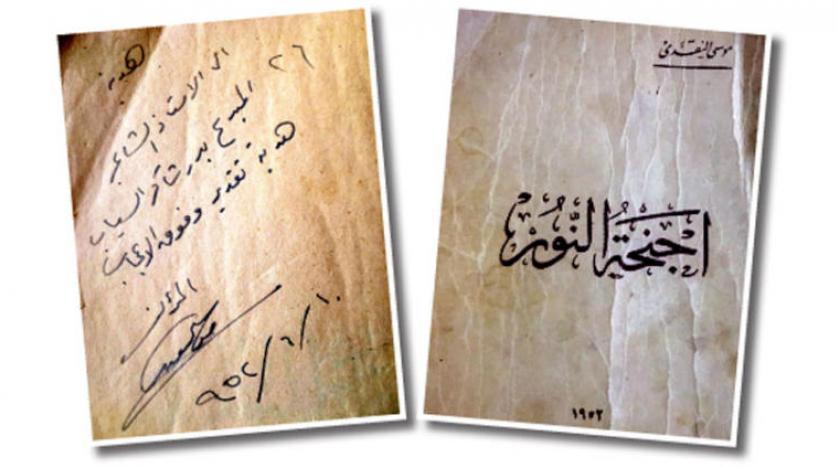 موسى النقدي
اجنحة النور
١٩٥٢
٢٦
هدية
الى الاستاذ الشاعر
المبدع بدر شاكر السياب
هدية تقدير وفوق الاعجاب
المؤلف
٩٥٢/٦/١٠